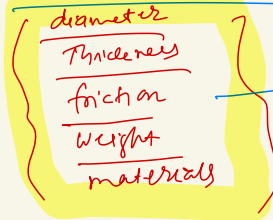 diameter
Thickness
friction
weight
materials